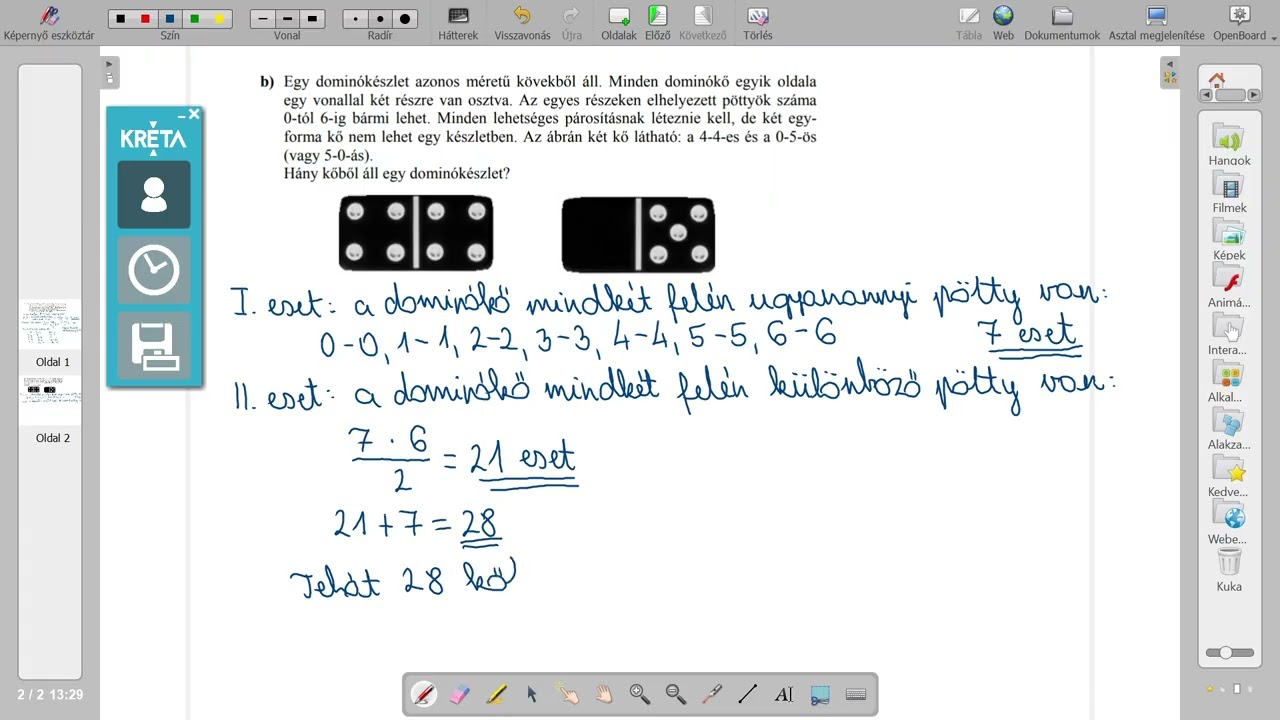 Képernyő eszköztár
Szín
Vonal
Radír
Hátterek
Visszavonás
Újra
Oldalak
Előző
Következő
Törlés
Tábla
Web
Dokumentumok
Asztal megjelenítése
OpenBoard
KRÉTA
b) Egy dominókészlet azonos méretű kövekből áll. Minden dominókő egyik oldala
egy vonallal két részre van osztva. Az egyes részeken elhelyezett pöttyök száma
0-tól 6-ig bármi lehet. Minden lehetséges párosításnak léteznie kell, de két egy-
forma kő nem lehet egy készletben. Az ábrán két kő látható: a 4-4-es és a 0-5-ös
(vagy 5-0-ás).
Hány kőből áll egy dominókészlet?
I. eset: a dominókő mindkét felén ugyanannyi pötty van:
0-0, 1-1, 2-2, 3-3, 4-4, 5-5, 6-6 7 eset
II. eset: a dominókő mindkét felén különböző pötty van:
7 · 6
2
= 21 eset
21+7 = 28
Tehát 28 kő
Oldal 1
Oldal 2
2 / 2 13:29
Hangok
Filmek
Képek
Animá...
Intera...
Alkal...
Alakza...
Kedve...
Webe...
Kuka
AI